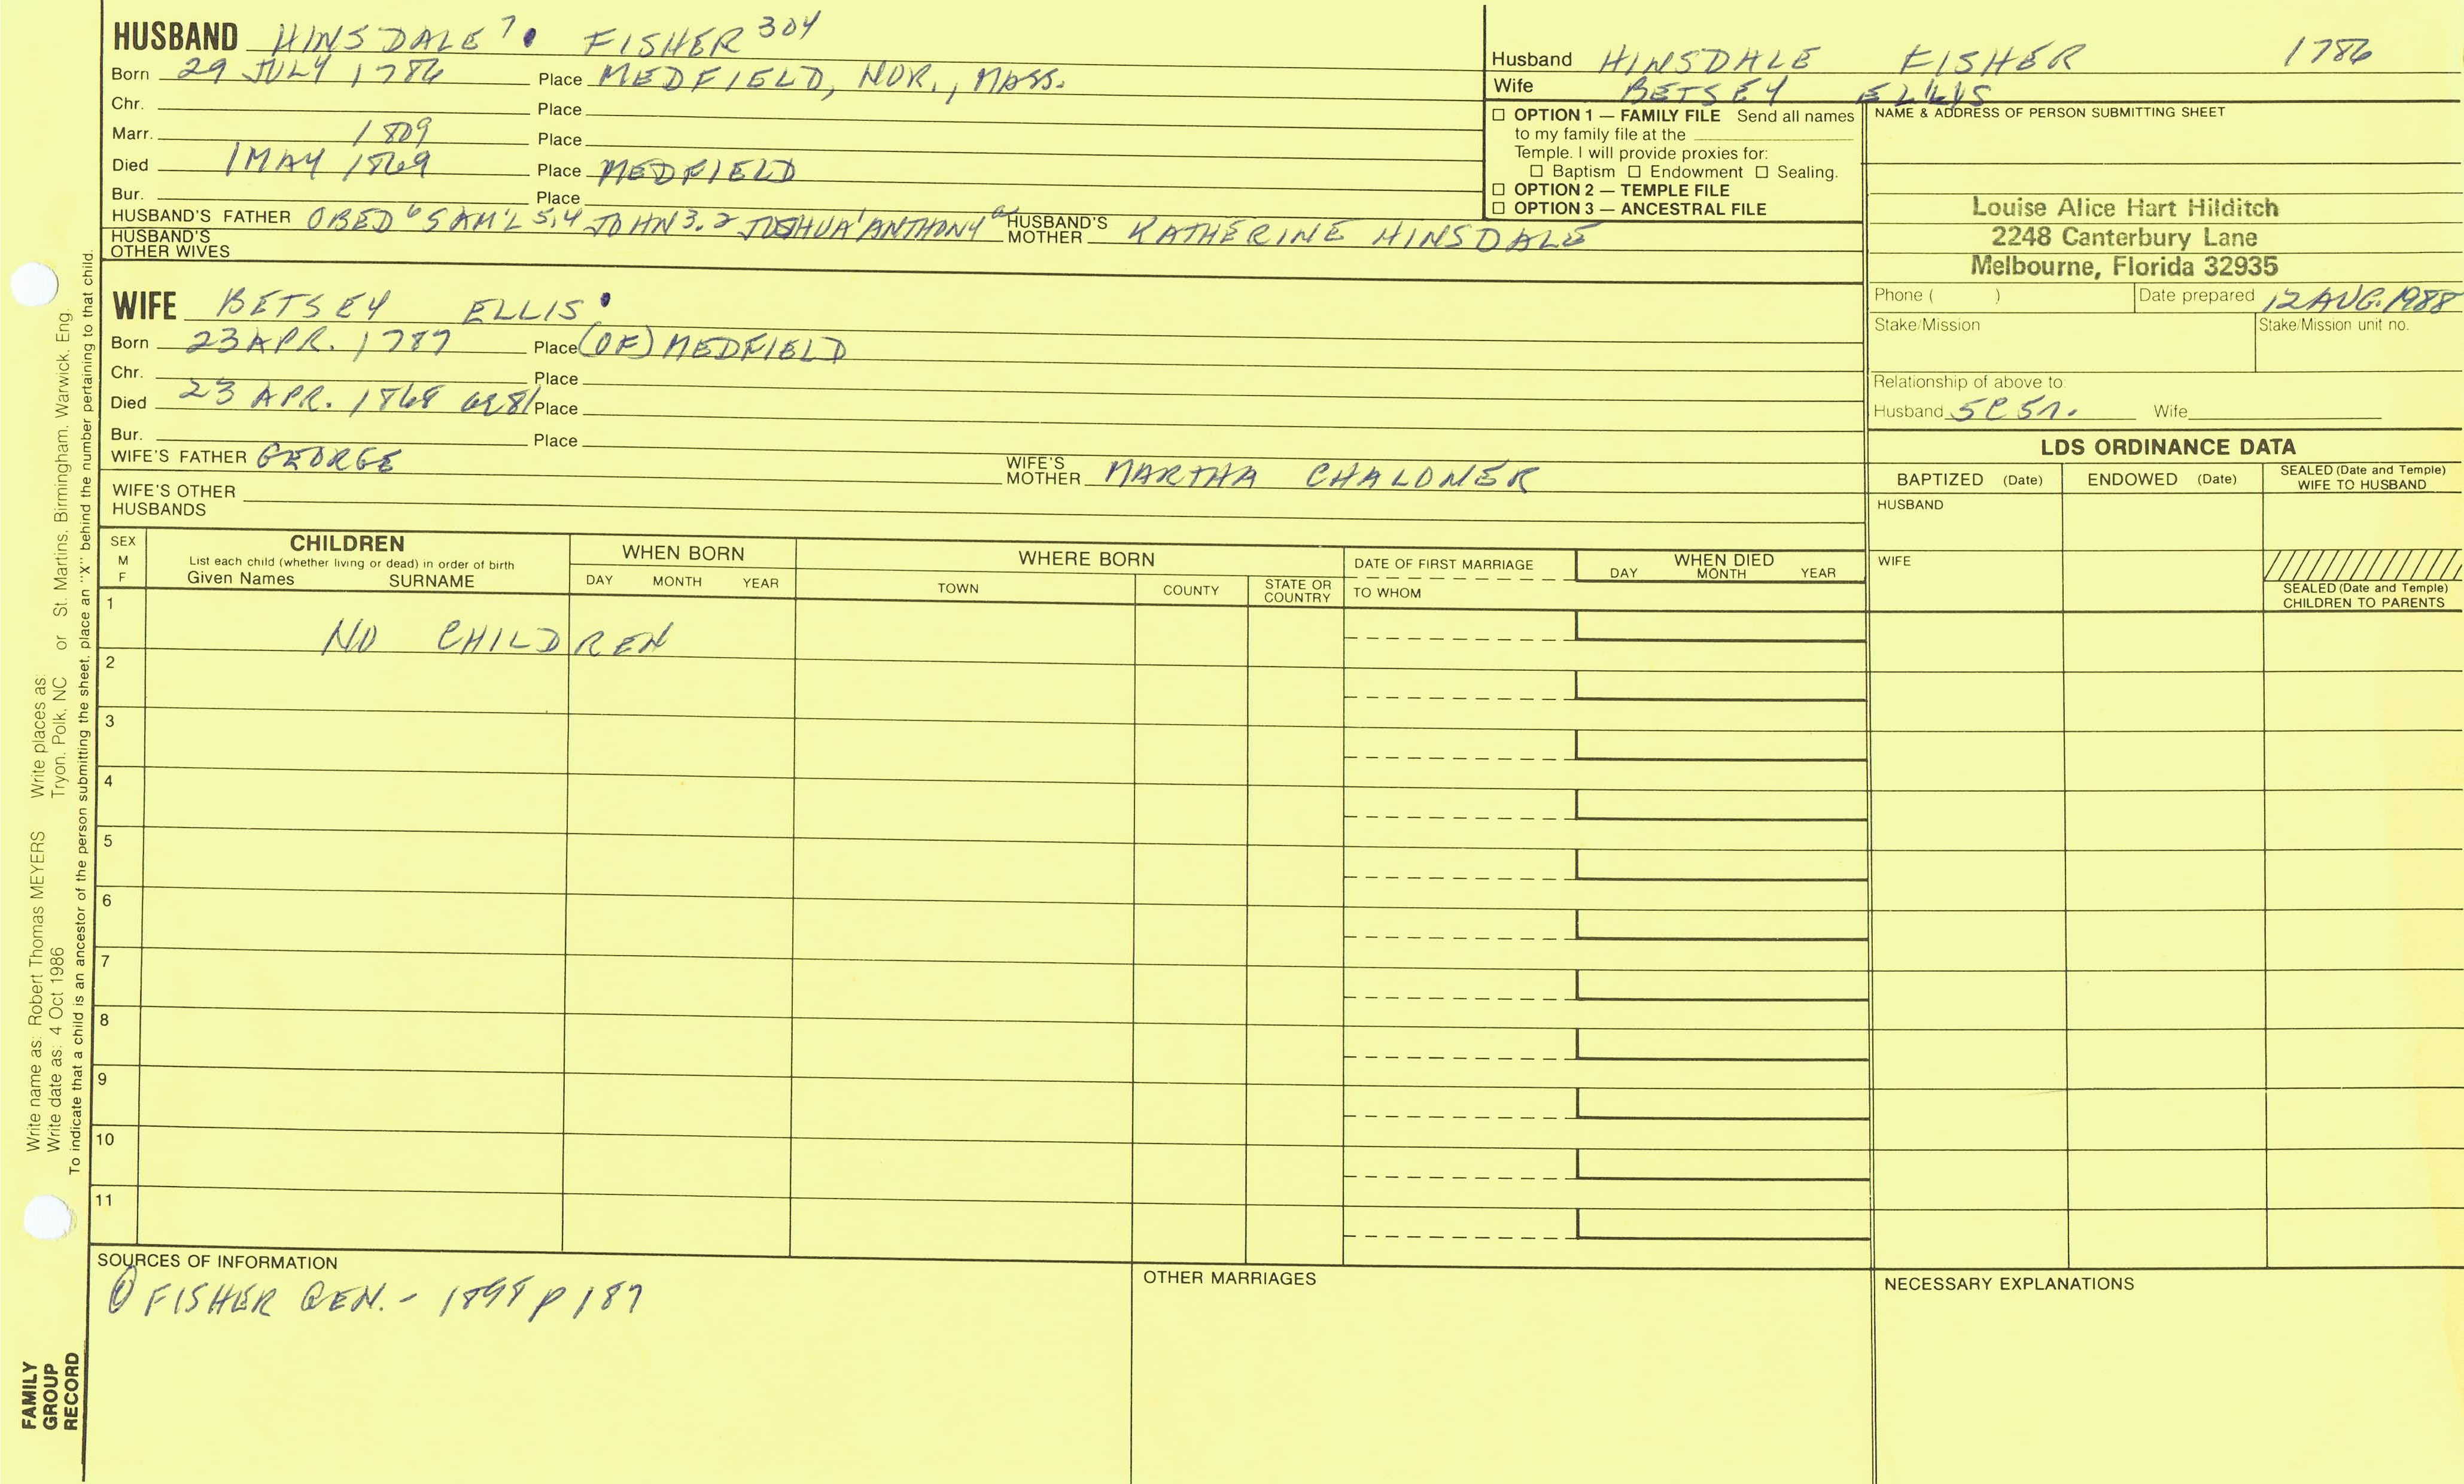 HUSBAND HINSDALE 7. FISHER 304
Born 29 JULY 1786 Place MEDFIELD, NOR., MASS.
Chr. Place
Marr. 1809 Place
Died 1 MAY 1869 Place MEDFIELD
Bur. Place
HUSBAND'S FATHER OBED 6 SAM'L 5,4 JOHN 3.2 JOSHUA 1 ANTHONY a HUSBAND'S MOTHER KATHERINE HINSDALE
HUSBAND'S OTHER WIVES
WIFE BETSEY ELLIS
Born 23 APR. 1787 Place (OF) MEDFIELD
Chr. Place
Died 23 APR. 1868 Place
Bur. Place
WIFE'S FATHER GEORGE WIFE'S MOTHER MARTHA
WIFE'S OTHER HUSBANDS
Husband HINSDALE FISHER 1786
Wife BETSEY ELLIS
☐ OPTION 1 — FAMILY FILE Send all names
to my family file at the
Temple. I will provide proxies for:
☐ Baptism ☐ Endowment ☐ Sealing.
☐ OPTION 2 — TEMPLE FILE
☐ OPTION 3 — ANCESTRAL FILE
NAME & ADDRESS OF PERSON SUBMITTING SHEET
Louise Alice Hart Hilditch
2248 Canterbury Lane
Melbourne, Florida 32935
Phone ( ) Date prepared 12 AUG. 1988
Stake/Mission Stake/Mission unit no.
Relationship of above to:
Husband Wife
LDS ORDINANCE DATA
BAPTIZED (Date) ENDOWED (Date) SEALED (Date and Temple) WIFE TO HUSBAND
HUSBAND
WIFE
SEALED (Date and Temple) CHILDREN TO PARENTS
SEX M F
CHILDREN
List each child (whether living or dead) in order of birth
Given Names SURNAME
WHEN BORN
DAY MONTH YEAR
WHERE BORN
TOWN COUNTY STATE OR COUNTRY
DATE OF FIRST MARRIAGE
TO WHOM
WHEN DIED
DAY MONTH YEAR
1
NO CHILDREN
2
3
4
5
6
7
8
9
10
11
SOURCES OF INFORMATION
① FISHER GEN. - 1898 p 187
OTHER MARRIAGES
NECESSARY EXPLANATIONS
Write name as: Robert Thomas MEYERS Write places as:
Write date as: 4 Oct 1986 Tryon, Polk, NC or St. Martins, Birmingham, Warwick, Eng.
To indicate that a child is an ancestor of the person submitting the sheet, place an "X" behind the number pertaining to that child.
FAMILY
GROUP
RECORD